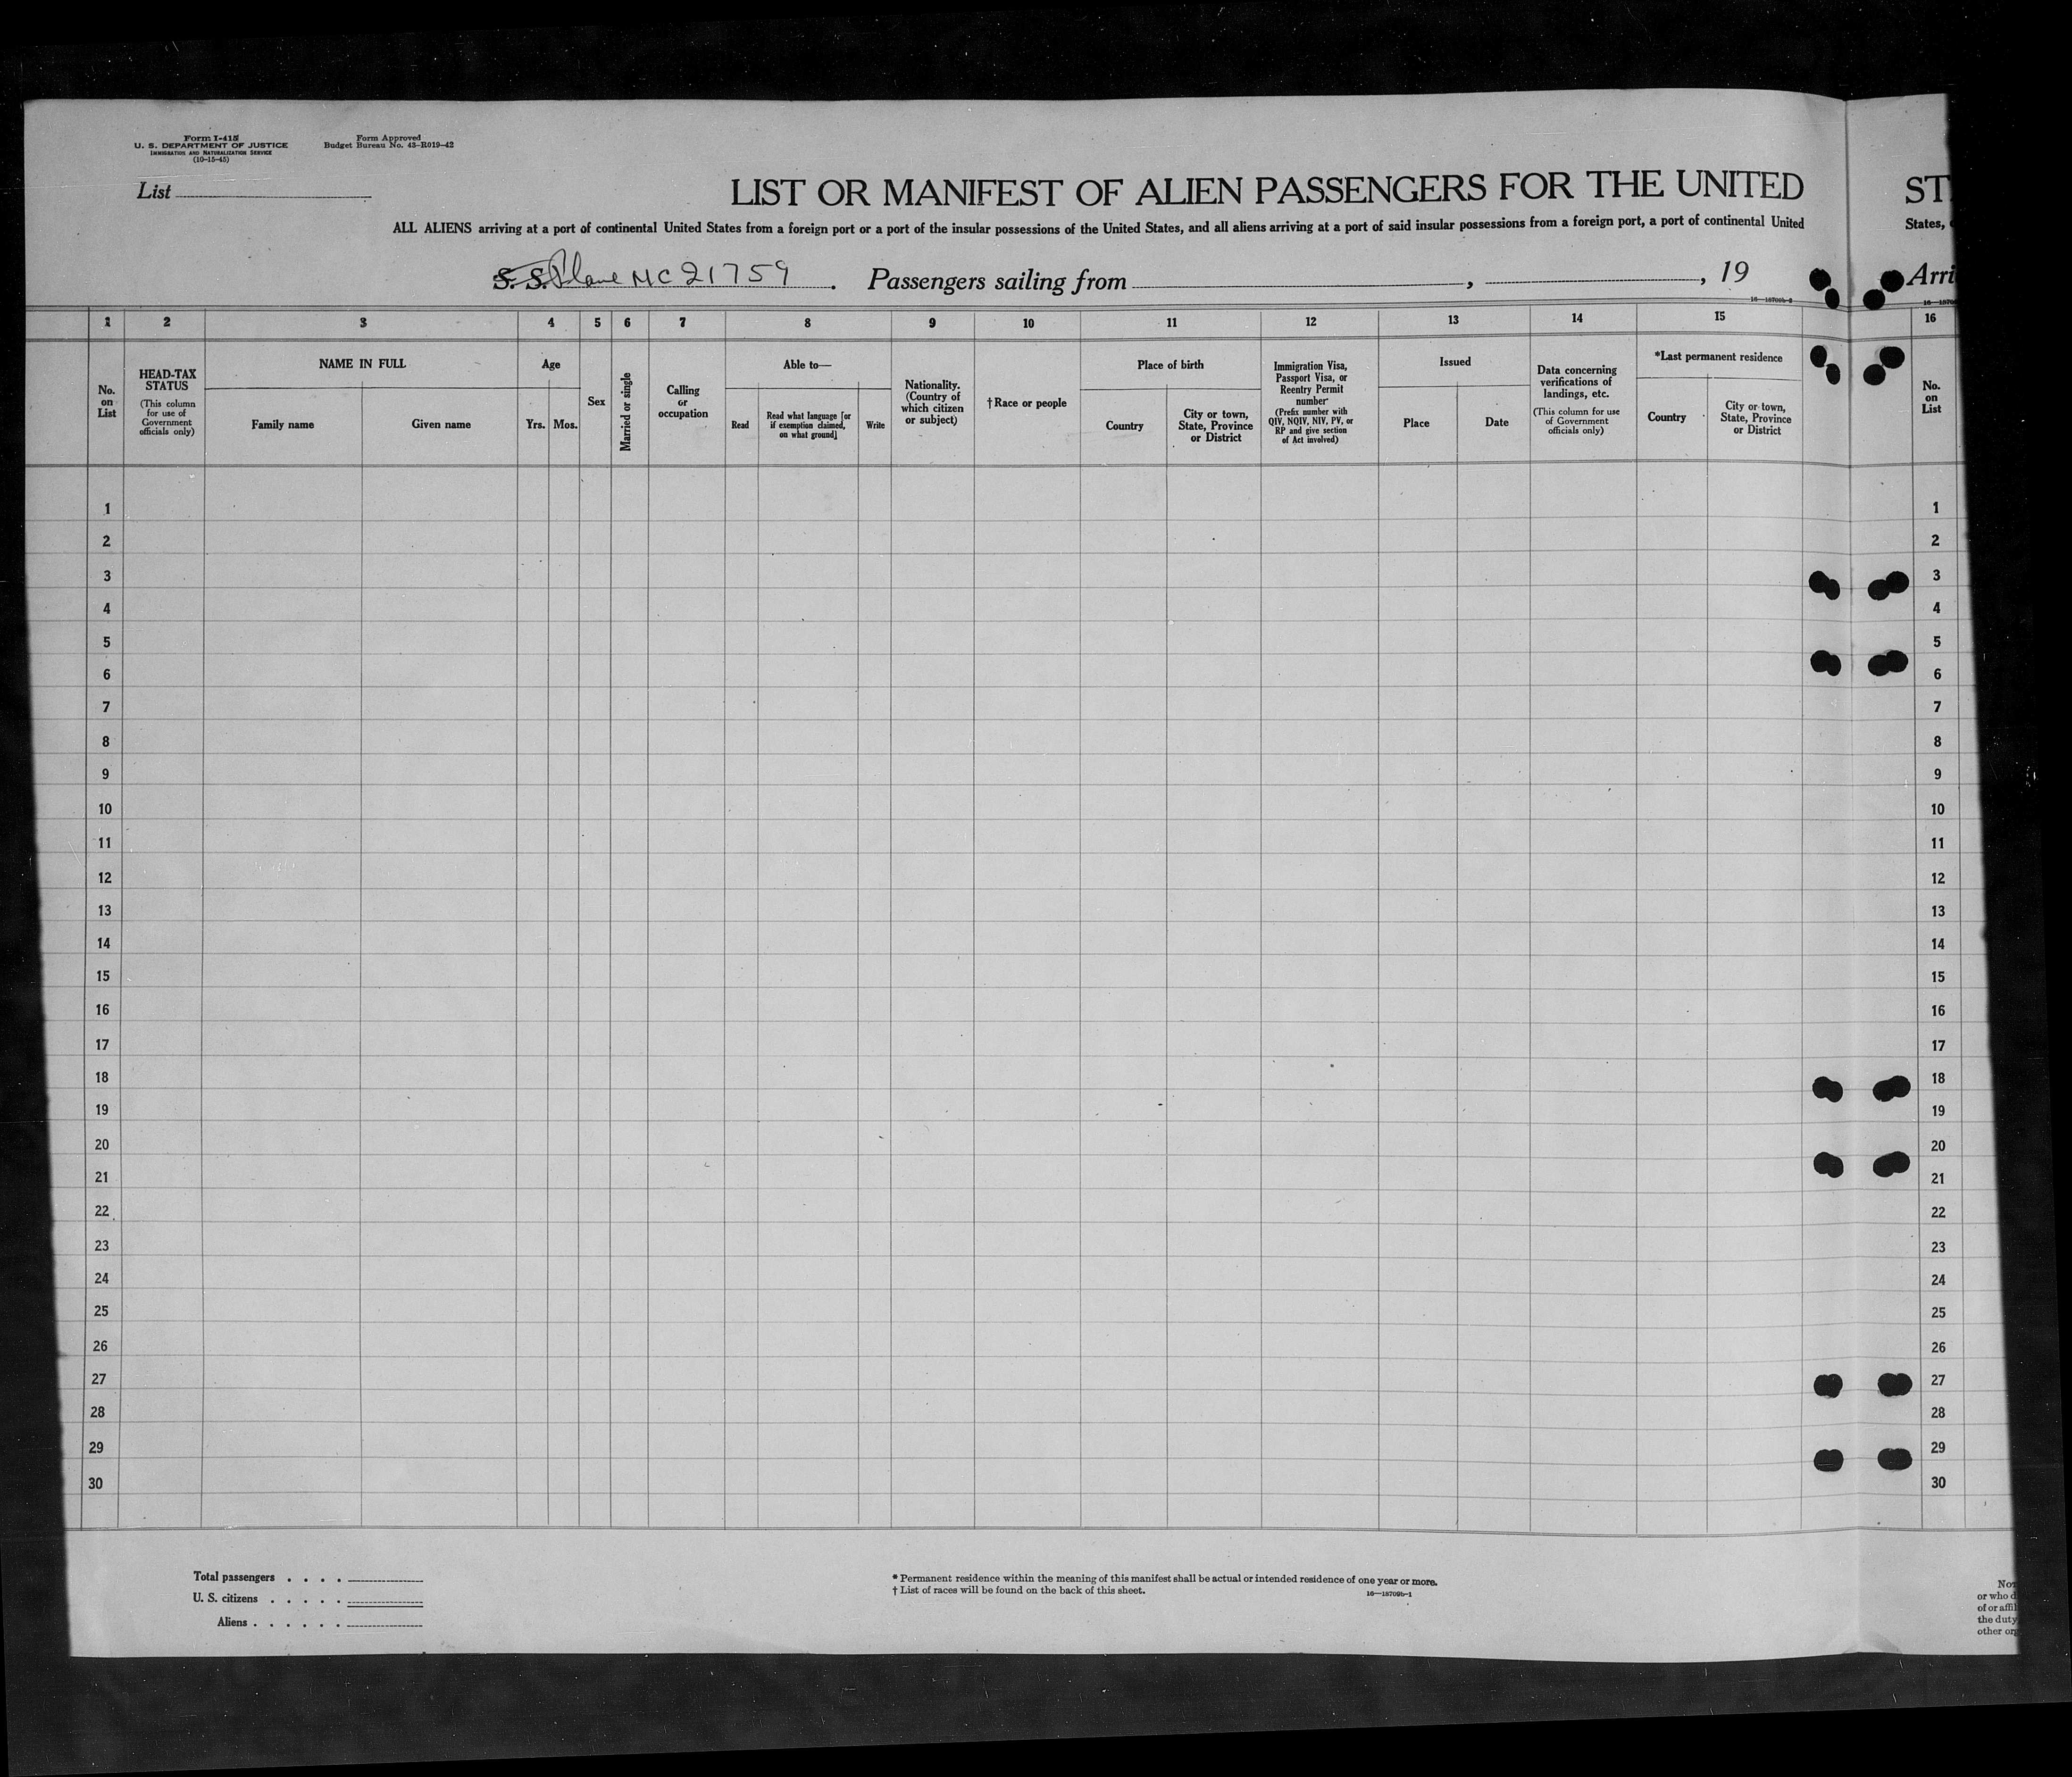 Form I-415
U. S. DEPARTMENT OF JUSTICE
IMMIGRATION AND NATURALIZATION SERVICE
(10-15-45)
Form Approved
Budget Bureau No. 43-R019-42
List
LIST OR MANIFEST OF ALIEN PASSENGERS FOR THE UNITED
ST
ALL ALIENS arriving at a port of continental United States from a foreign port or a port of the insular possessions of the United States, and all aliens arriving at a port of said insular possessions from a foreign port, a port of continental United
States,
S. S. Plane NC 21759 . Passengers sailing from , , 19
Arri
16—18709b-2
1 2 3 4 5 6 7 8 9 10 11 12 13 14 15 16
No. on List
HEAD-TAX STATUS
(This column for use of Government officials only)
NAME IN FULL
Family name
Given name
Age
Yrs.
Mos.
Sex
Married or single
Calling or occupation
Able to—
Read
Read what language [or if exemption claimed, on what ground]
Write
Nationality. (Country of which citizen or subject)
†Race or people
Place of birth
Country
City or town, State, Province or District
Immigration Visa, Passport Visa, or Reentry Permit number
(Prefix number with QIV, NQIV, NIV, PV, or RP and give section of Act involved)
Issued
Place
Date
Data concerning verifications of landings, etc.
(This column for use of Government officials only)
*Last permanent residence
Country
City or town, State, Province or District
No. on List
1 1
2 2
3 3
4 4
5 5
6 6
7 7
8 8
9 9
10 10
11 11
12 12
13 13
14 14
15 15
16 16
17 17
18 18
19 19
20 20
21 21
22 22
23 23
24 24
25 25
26 26
27 27
28 28
29 29
30 30
Total passengers . . . .
U. S. citizens . . . . .
Aliens . . . . . .
* Permanent residence within the meaning of this manifest shall be actual or intended residence of one year or more.
† List of races will be found on the back of this sheet.
16—18709b-1
or who d
of or affil
the duty
other org